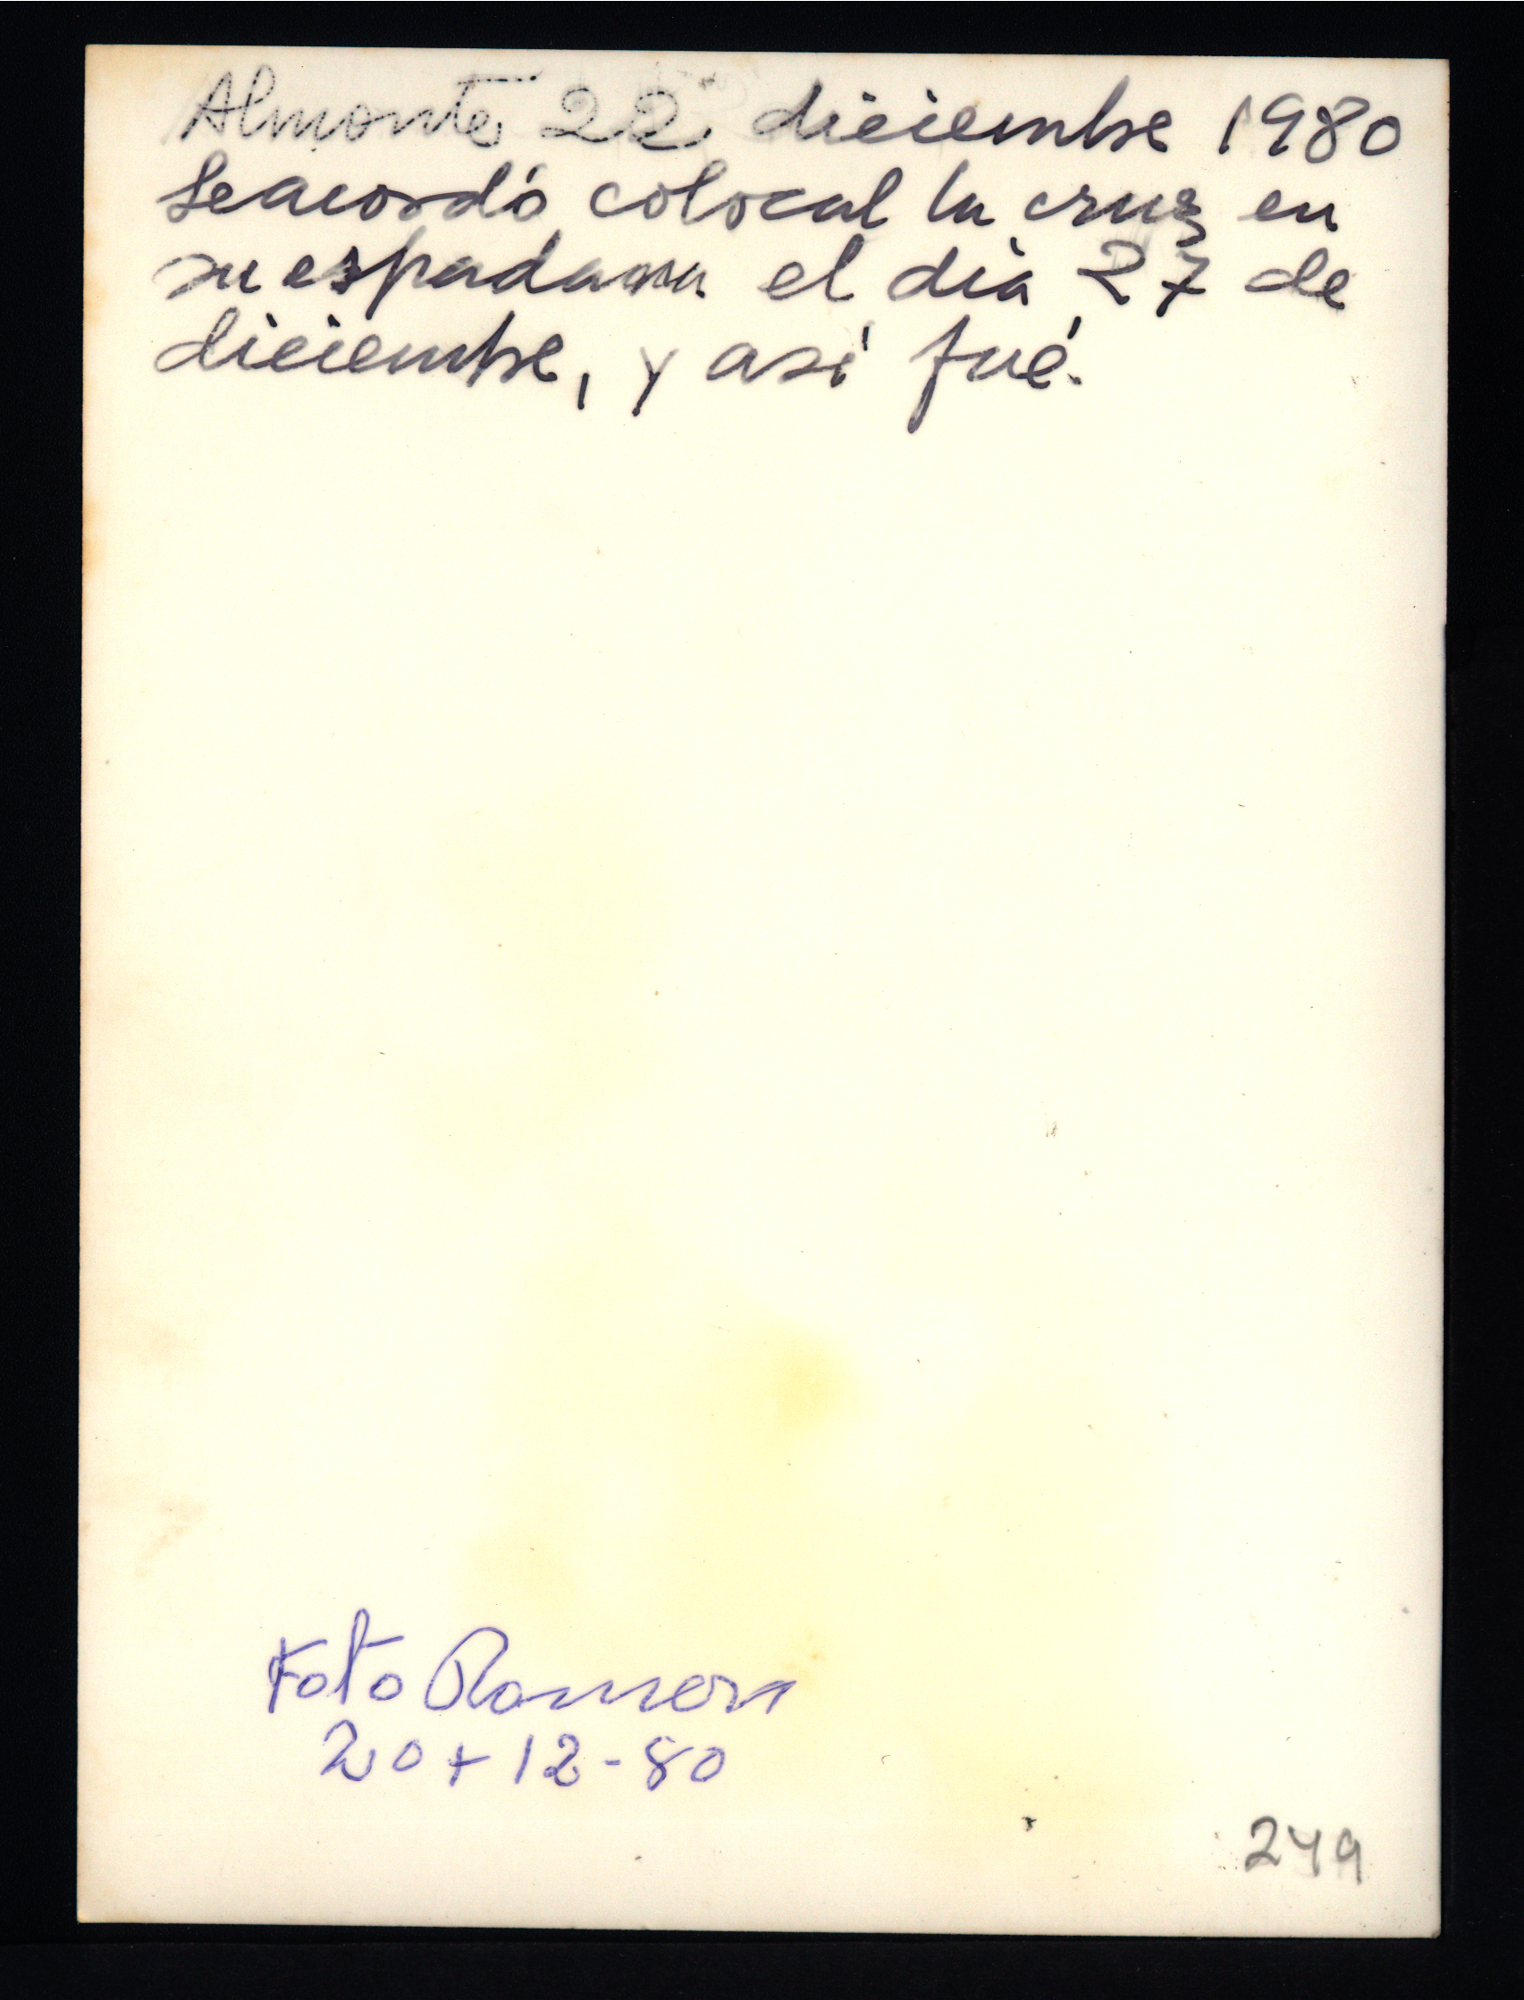 Almonte 22 diciembre 1980
Se acordó colocal la cruz en
su espadana el día 27 de
diciembre, y así fué.
Foto Ramon
20+12-80
249